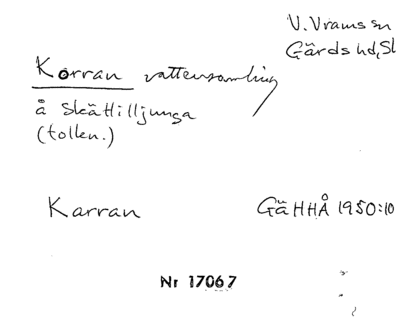 V. Vrams sn
Gärds hd, Sk
Korran vattensamling
å Skättilljunga
(tollen.)
Karran GäHHÅ 1950:10
Nr 17067